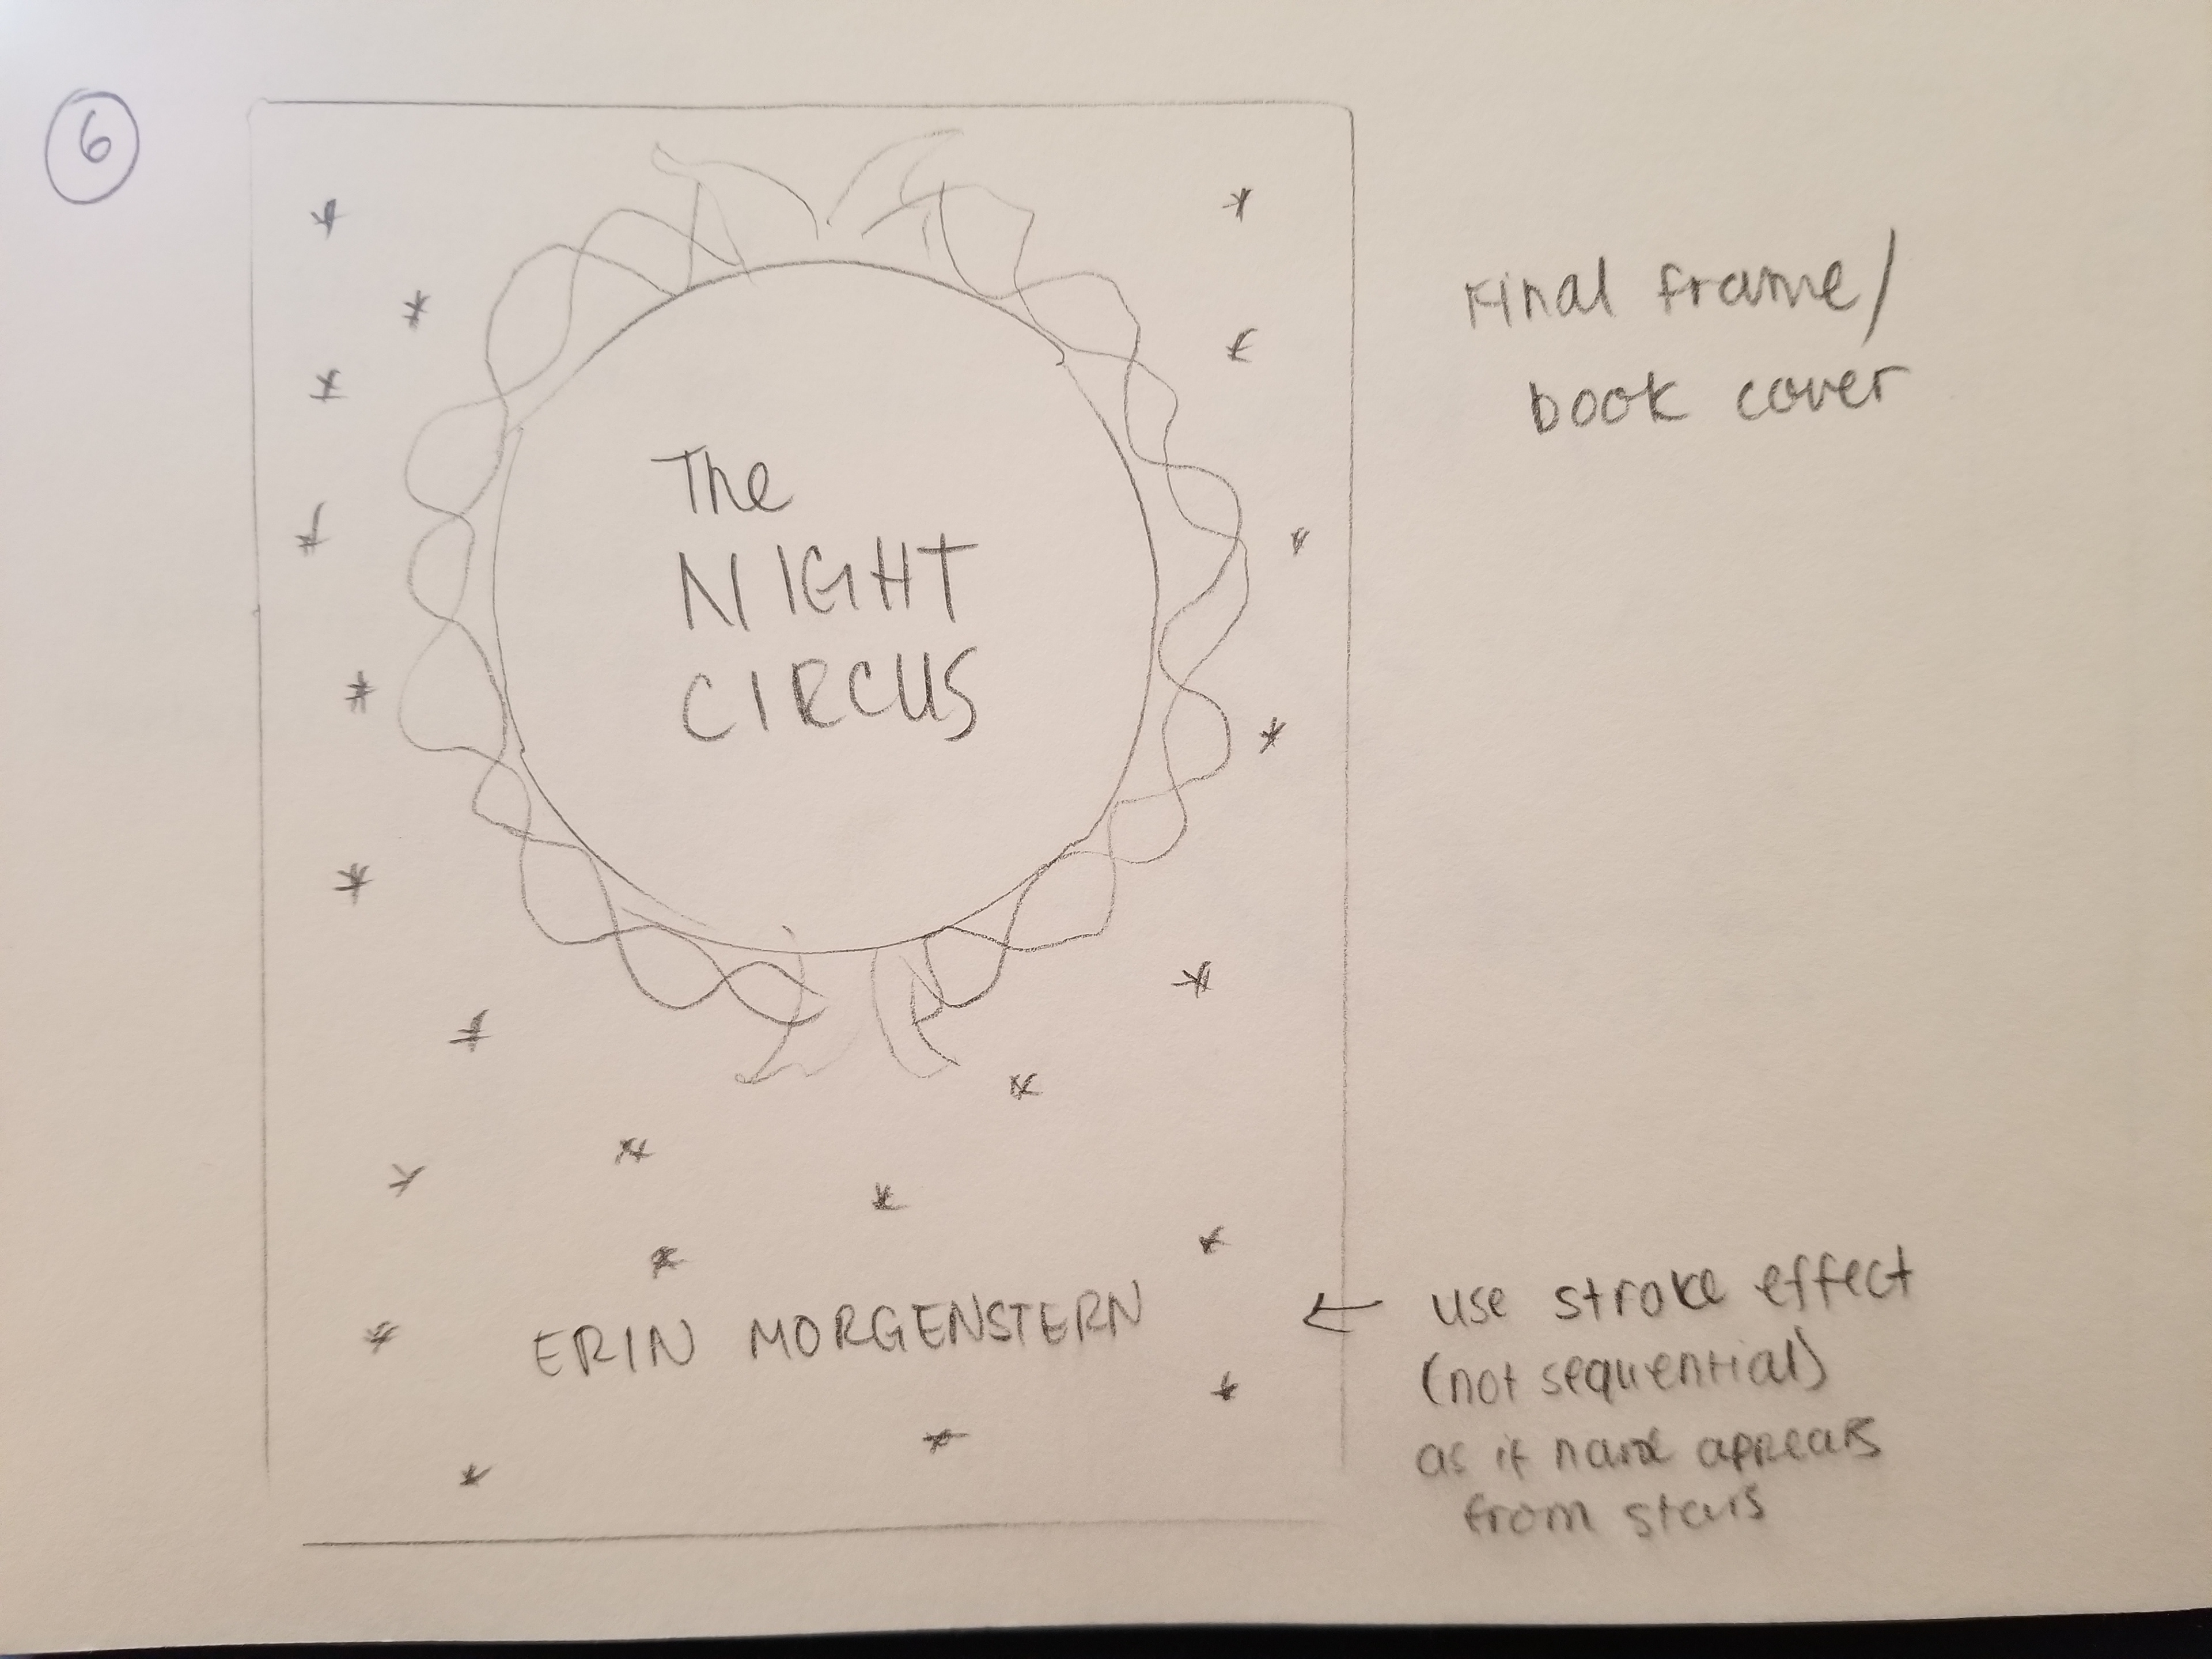 6
The
NIGHT
CIRCUS
ERIN MORGENSTERN
Final frame/
book cover
use stroke effect
(not sequential)
as if name appears
from stars